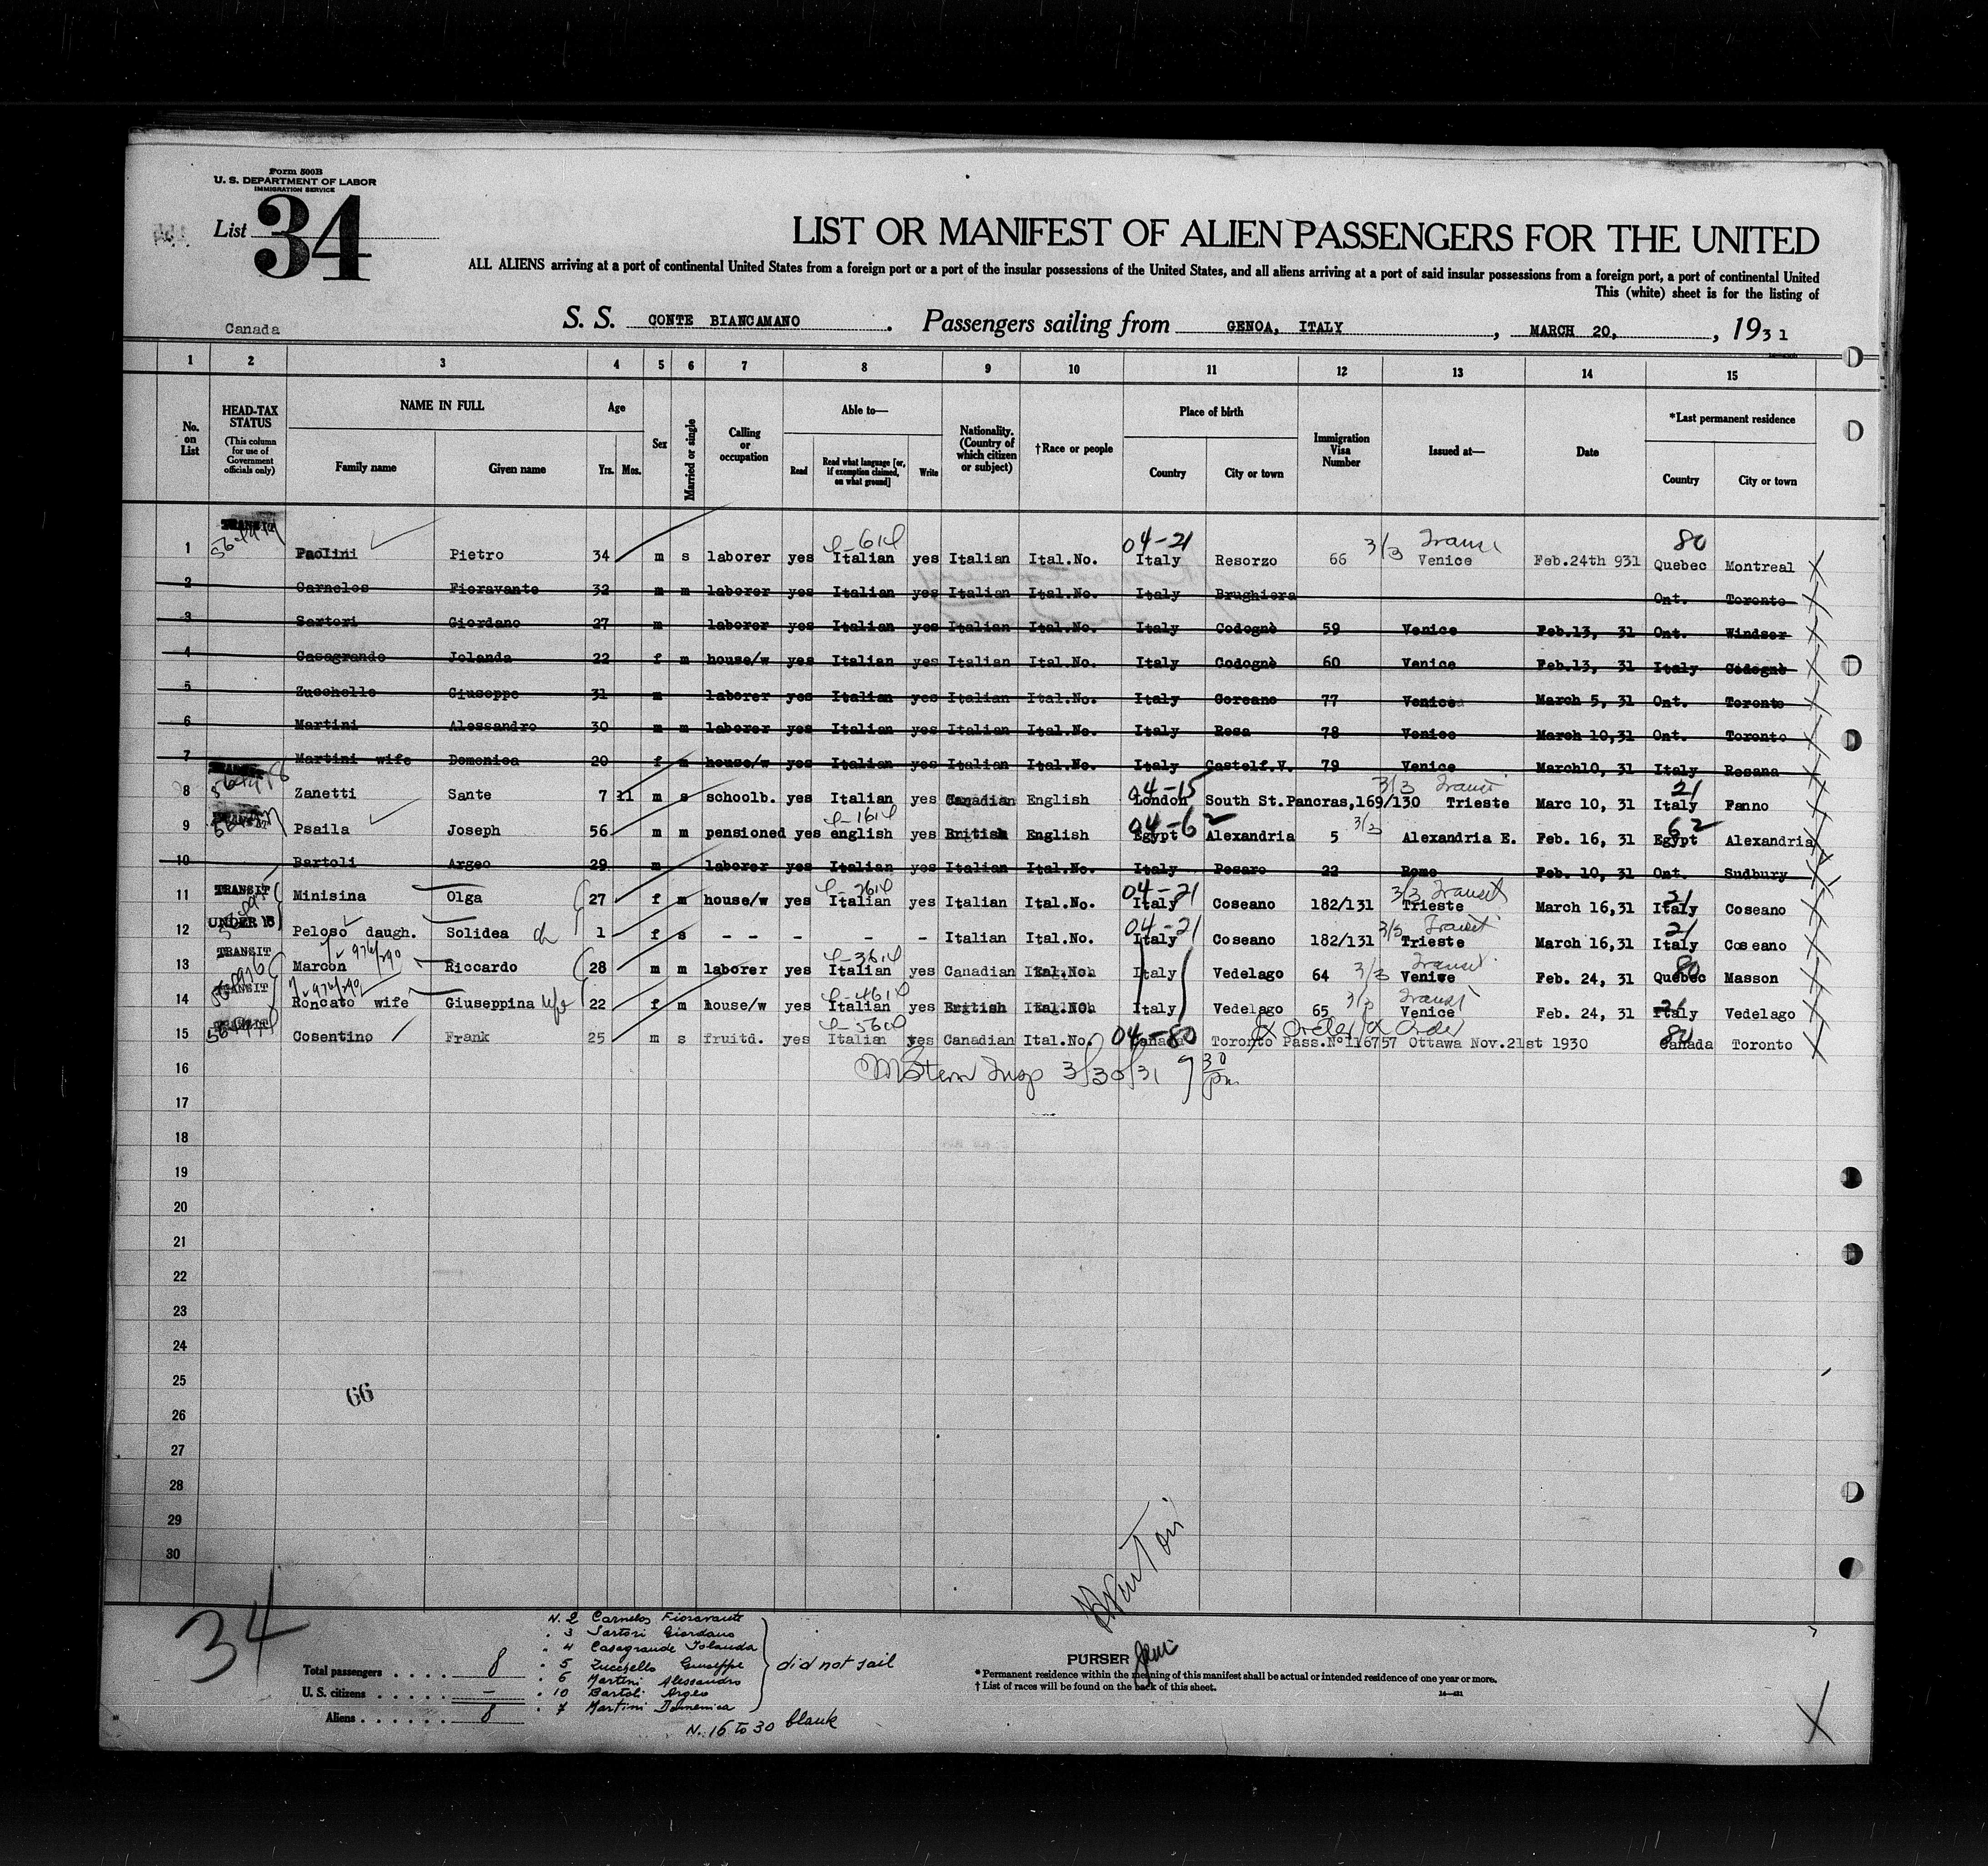 Form 500B
U. S. DEPARTMENT OF LABOR
IMMIGRATION SERVICE
List 34
LIST OR MANIFEST OF ALIEN PASSENGERS FOR THE UNITED
ALL ALIENS arriving at a port of continental United States from a foreign port or a port of the insular possessions of the United States, and all aliens arriving at a port of said insular possessions from a foreign port, a port of continental United
This (white) sheet is for the listing of
Canada
S. S. CONTE BIANCAMANO. Passengers sailing from GENOA, ITALY, MARCH 20, , 1931
1 2 3 4 5 6 7 8 9 10 11 12 13 14 15
No. on List
HEAD-TAX STATUS (This column for use of Government officials only)
NAME IN FULL
Family name Given name
Age
Yrs. Mos.
Sex
Married or single
Calling or occupation
Able to—
Read Read what language [or, if exemption claimed, on what ground] Write
Nationality. (Country of which citizen or subject)
†Race or people
Place of birth
Country City or town
Immigration Visa Number
Issued at—
Date
*Last permanent residence
Country City or town
TRANSIT 04-21 3/3 80
1 Paolini Pietro 34 m s laborer yes Italian yes Italian Ital.No. Italy Resorzo 66 Venice Feb.24th 931 Quebec Montreal
2 Carnelos Fioravante 32 m m laborer yes Italian yes Italian Ital.No. Italy Brughiera Ont. Toronto
3 Sartori Giordano 27 m laborer yes Italian yes Italian Ital.No. Italy Codognè 59 Venice Feb.13, 31 Ont. Windsor
4 Casagrande Jolanda 22 f m house/w yes Italian yes Italian Ital.No. Italy Codognè 60 Venice Feb.13, 31 Italy Codognè
5 Zucchello Giuseppe 31 m laborer yes Italian yes Italian Ital.No. Italy Coreano 77 Venice March 5, 31 Ont. Toronto
6 Martini Alessandro 30 m m laborer yes Italian yes Italian Ital.No. Italy Rosa 78 Venice March 10,31 Ont. Toronto
7 Martini wife Domenica 20 f m house/w yes Italian yes Italian Ital.No. Italy Castelf.V. 79 Venice March10, 31 Italy Rosana
04-15 3/3 Transit 21
8 Zanetti Sante 7 11 m s schoolb. yes Italian yes Canadian English London South St.Pancras,169/130 Trieste Marc 10, 31 Italy Fanno
04-62 3/3 62
9 Psaila Joseph 56 m m pensioned yes english yes British English Egypt Alexandria 5 Alexandria E. Feb. 16, 31 Egypt Alexandria
10 Bartoli Argeo 29 m laborer yes Italian yes Italian Ital.No. Italy Pesaro 22 Rome Feb. 10, 31 Ont. Sudbury
TRANSIT 04-21 3/3 Transit 21
11 Minisina Olga 27 f m house/w yes Italian yes Italian Ital.No. Italy Coseano 182/131 Trieste March 16,31 Italy Coseano
UNDER 16 04-21 3/3 Transit 21
12 Peloso daugh. Solidea ch 1 f s - - - - Italian Ital.No. Italy Coseano 182/131 Trieste March 16,31 Italy Coseano
TRANSIT 3/3 Transit 80
13 Marcon Riccardo 28 m m laborer yes Italian yes Canadian Ital.No. Italy Vedelago 64 Venice Feb. 24, 31 Quebec Masson
TRANSIT 3/3 Transit 21
14 Roncato wife Giuseppina wife 22 f m house/w yes Italian yes British Ital.NO. Italy Vedelago 65 Venice Feb. 24, 31 Italy Vedelago
04-80 80
15 Cosentino Frank 25 m s fruitd. yes Italian yes Canadian Ital.No. Canada Toronto Pass.N°116757 Ottawa Nov.21st 1930 Canada Toronto
16 Stern Insp 3/30/31 9 30 pm
17
18
19
20
21
22
23
24
25
66
26
27
28
29
30
34
N. 2 Carnelos Fioravante
. 3 Sartori Giordano
. 4 Casagrande Iolanda
. 5 Zucchello Giuseppe
. 6 Martini Alessandro
. 10 Bartoli Argeo
. 7 Martini Domenica
did not sail
N. 16 to 30 blank
Total passengers 8
U. S. citizens –
Aliens 8
PURSER
* Permanent residence within the meaning of this manifest shall be actual or intended residence of one year or more.
† List of races will be found on the back of this sheet.